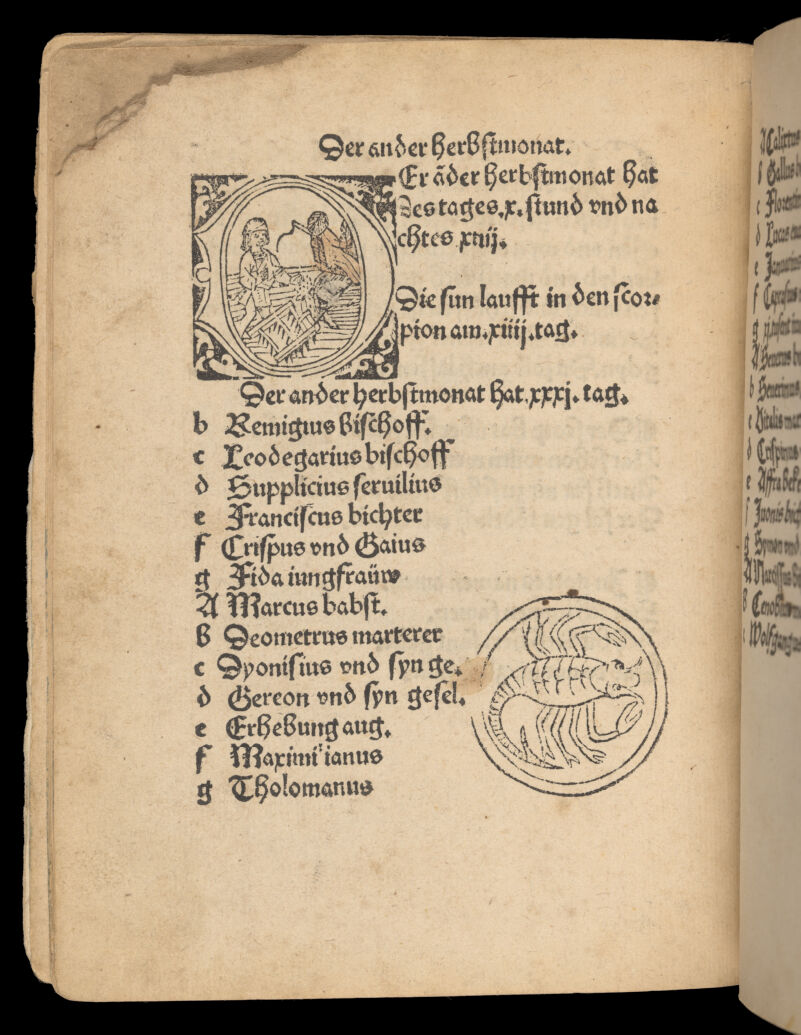 Der ander herbstmonat.
Er āder herbstmonat hat
des tages .x. stund vnd na
chtes xiiij.
Die sun laufft in den scor⸗
pion am .xiiij. tag.
Der ander herbstmonat hat .xxxj. tag.
b Remigius bischoff.
c Leodegarius bischoff
d Supplicius seruilius
e Franciscus bichter
f Crispus vnd Gaius
g Fida iungfraüw
A Marcus babst.
b Deometrus marterer
c Dyonisius vnd syn ge.
d Gereon vnd syn gesel.
e Erhebung aug.
f Maximilianus
g Tholomanus
A Calixtus
b Gallus
c Florentin
d Lucas
e Januarius
f
g
A Seuerus
b Seuerinus
c Vitalis mar
d Crispinus
e Affra beke
f Juonis bisch
g Symon vnd
A Narcissus
b
c Wolfgangus